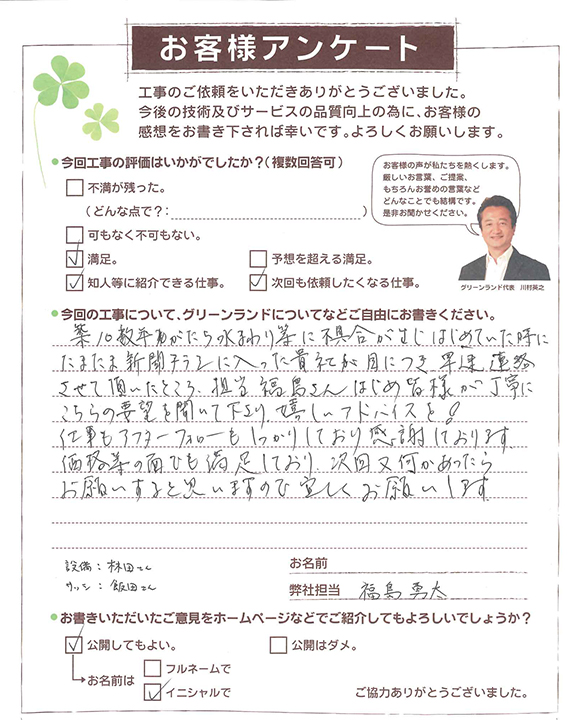 お客様アンケート
工事のご依頼をいただきありがとうございました。
今後の技術及びサービスの品質向上の為に、お客様の
感想をお書き下されば幸いです。よろしくお願いします。
今回工事の評価はいかがでしたか？(複数回答可)
不満が残った。
(どんな点で？: )
可もなく不可もない。
満足。
予想を超える満足。
知人等に紹介できる仕事。
次回も依頼したくなる仕事。
お客様の声が私たちを熱くします。
厳しいお言葉、ご提案、
もちろんお誉めの言葉など
どんなことでも結構です。
是非お聞かせください。
グリーンランド代表 川村英之
今回の工事について、グリーンランドについてなどご自由にお書きください。
築10数年あがたち水まわり等に不具合が生じはじめていた時に
たまたま新聞チラシに入った貴社が目につき早速連絡
させて頂いたところ、担当福島さんはじめ皆様が丁寧に
こちらの要望を聞いて下さり、嬉しいアドバイスも!
仕事もアフターフォローもしっかりしており感謝しております
価格等の面でも満足しており、次回又何かあったら
お願いすると思いますので宜しくお願いします
設備：林田さん
サッシ：飯田さん
お名前
弊社担当 福島勇太
お書きいただいたご意見をホームページなどでご紹介してもよろしいでしょうか？
公開してもよい。
公開はダメ。
お名前は
フルネームで
イニシャルで
ご協力ありがとうございました。